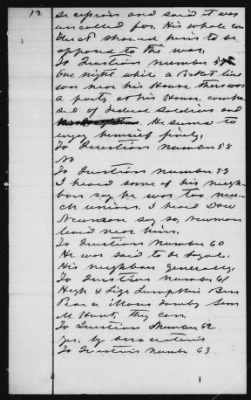 12
secession and said it was
uncalled for. His whole con
duct showed him to be
opposed to the war.
To Question number 57
One night while a Picket line
was near his House there was
a party at his House compo
sed of Federal Soldiers and
He seems to
enjoy himself finely.
To Question Number 58
No
To Question Number 59
I heard some of his neigh
bors say he was too mu
ch union. I heard
Newman say so, Newman
lived near him.
To Question Number 60
He was said to be loyal.
His neighbors generally.
To Question Number 61
Hugh & Lige Lumpkin Ben
M Hunt, They can.
To Question Number 62
Yes. by
To Question Number 63